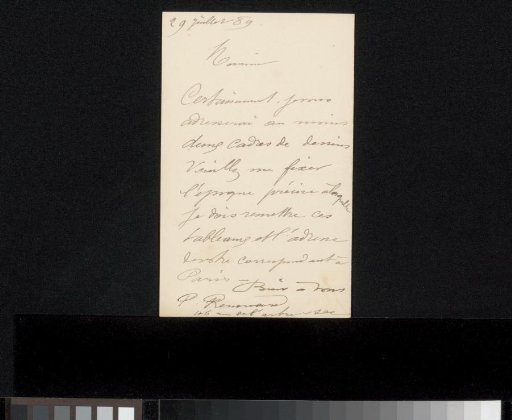 29 juillet 89
Monsieur
Certainement je vous
adresserai au moins
deux cadres de dessins
Veuillez me fixer
l'époque précise à laquelle
je dois remettre ces
tableaux et l'adresse
de votre correspondant à
Paris
Bien à vous
P. Renouard
rue de l'arbre sec